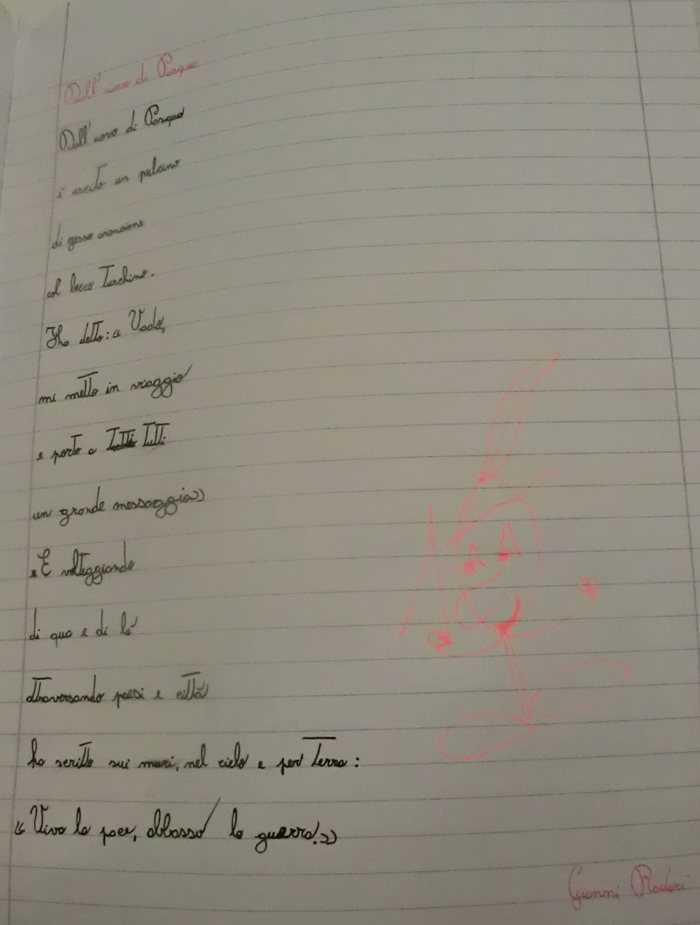 Dall'uovo di Pasqua
Dall'uovo di Pasqua
è uscito un pulcino
di gesso arancione
col becco turchino.
Ha detto: « Vado,
mi metto in viaggio
e porto a tutti
un grande messaggio»
E volteggiando
di qua e di là
attraversando paesi e città
ha scritto sui muri, nel cielo e per terra:
«Viva la pace, abbasso la guerra!»
Gianni Rodari